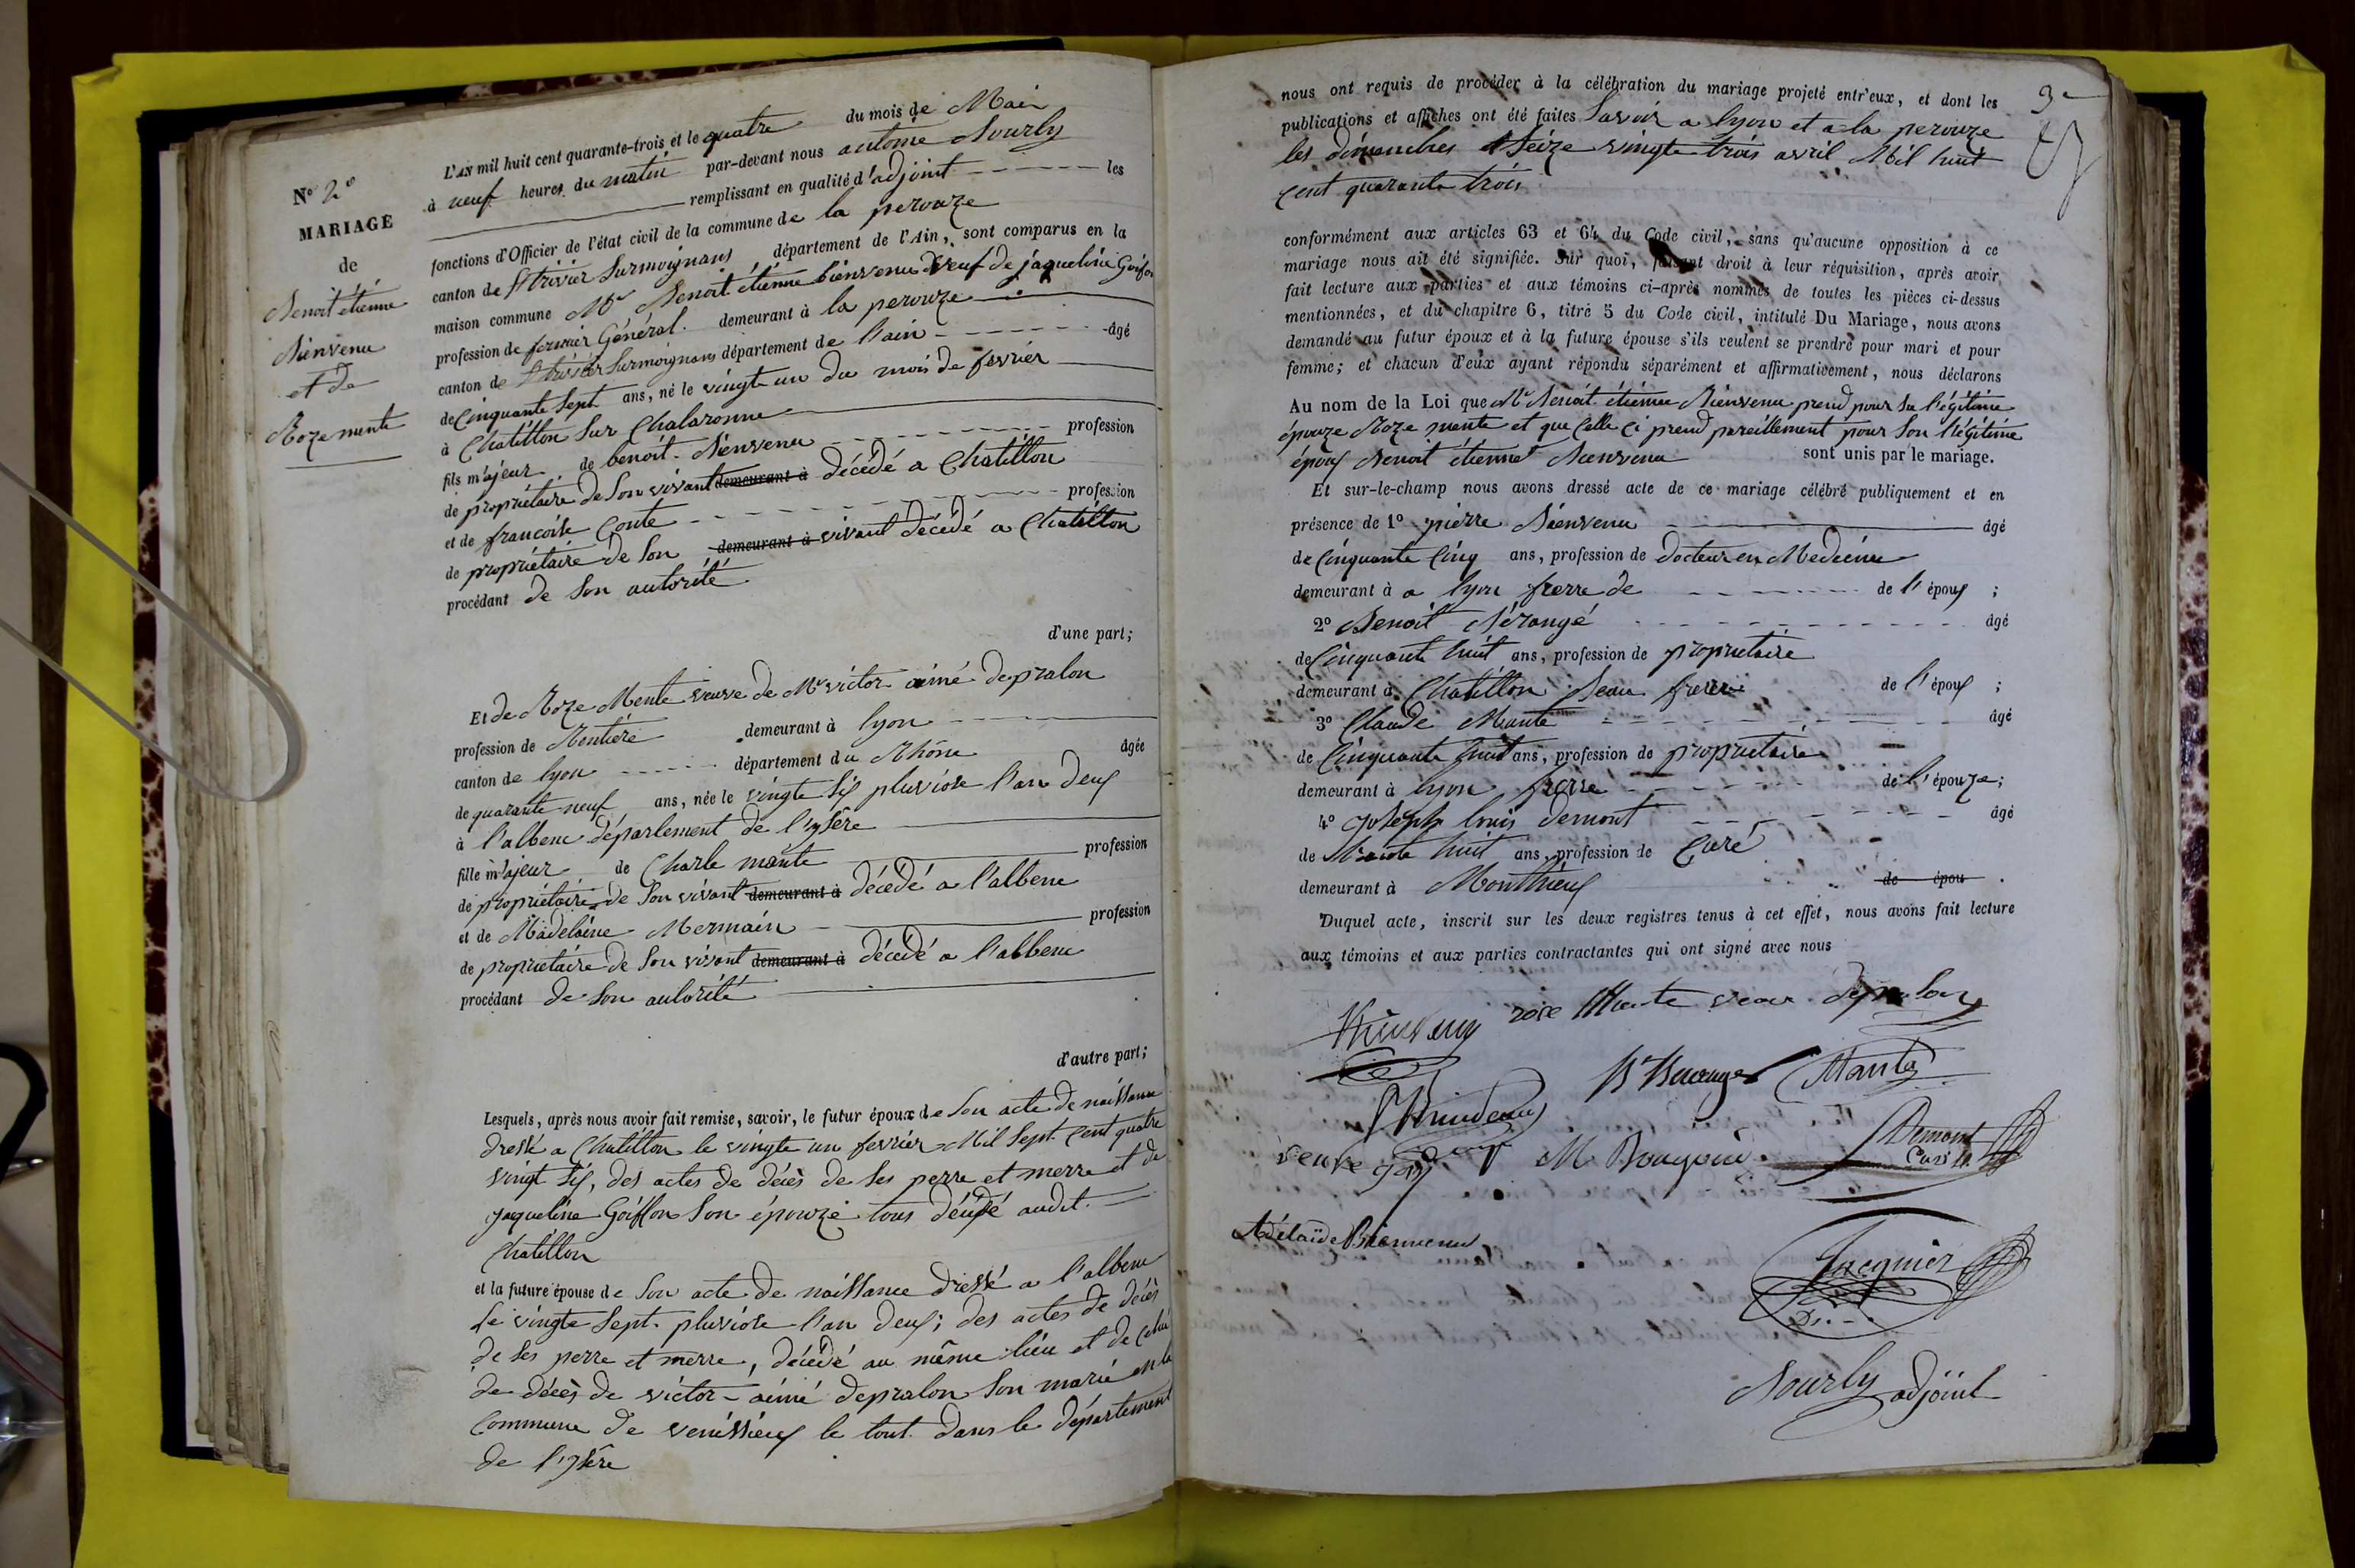 N° 2e
MARIAGE
de
Benoit étienne
Bienvenu
et de
Roze mente
L'AN mil huit cent quarante-trois et le quatre du mois de Mai
à neuf heures du matin par-devant nous antoine Nourly
remplissant en qualité d'adjoint les
fonctions d'Officier de l'état civil de la commune de la perouze
canton de St trivier Surmoignans département de l'Ain, sont comparus en la
maison commune Mr Benoit étienne bienvenu veuf de jaqueline Goiffon
profession de fermier Général demeurant à la perouze
canton de St trivier Surmoignans département de l'ain âgé
de Cinquante Sept ans, né le vingt un du mois de fevrier
à Chatillon Sur Chalaronne
fils majeur de benoit Bienvenu profession
de propriétaire de Son vivant demeurant à décédé a Chatillon
et de francoise Conte profession
de propriétaire de Son demeurant à vivant décédé a Chatillon
procédant de Son autorité
d'une part;
Et de Roze Mente veuve de Mr victor aimé depralon
profession de Rentière demeurant à lyon
canton de lyon département du Rhône âgée
de quarante neuf ans, née le vingte Six pluviose l'an deux
à l'albenc département de l'ysère
fille majeur de Charle mante profession
de propriétaire de Son vivant demeurant à décédé a l'albenc
et de Madeleine Mermain profession
de propriétaire de Son vivant demeurant à décédé a l'albenc
procédant de Son autorité
d'autre part;
Lesquels, après nous avoir fait remise, savoir, le futur époux de Son acte de naissance
dressé a Chatillon le vingte un fevrier Mil Sept Cent quatre
vingt Six, des actes de décès de Ses perre et merre et de
jaqueline Goiffon Son épouze tous décédé audit
Chatillon
et la future épouse de Son acte de naissance dressé a l'albenc
le vingte Sept pluviose l'an deux; des actes de décès
de Ses perre et merre, décédé au même lieu et de Celui
de décès de victor-aimé depralon Son marié en la
Commune de venissieux le tout dans le département
de l'ysère
3e
nous ont requis de procéder à la célébration du mariage projeté entr'eux, et dont les
publications et affiches ont été faites Savoir a lyon et a la perouze
les dimanches Seize vingte trois avril Mil huit
Cent quarante trois
conformément aux articles 63 et 64 du Code civil, sans qu'aucune opposition à ce
mariage nous ait été signifiée. Sur quoi, faisant droit à leur réquisition, après avoir
fait lecture aux parties et aux témoins ci-après nommés de toutes les pièces ci-dessus
mentionnées, et du chapitre 6, titre 5 du Code civil, intitulé Du Mariage, nous avons
demandé au futur époux et à la future épouse s'ils veulent se prendre pour mari et pour
femme; et chacun d'eux ayant répondu séparément et affirmativement, nous déclarons
Au nom de la Loi que Mr Benoit étienne Bienvenu prend pour Sa légitime
épouze Roze mente et que Celle Ci prend pareillement pour Son légitime
époux Benoit étienne Bienvenu sont unis par le mariage.
Et sur-le-champ nous avons dressé acte de ce mariage célébré publiquement et en
présence de 1° pierre Bienvenu âgé
de Cinquante Cinq ans, profession de docteur en Medecine
demeurant à a lyon frerre de de l'époux ;
2° Benoit Bérangé âgé
de Cinquante huit ans, profession de proprietaire
demeurant à Chatillon Beau frerre de l'époux ;
3° Claude Mante âgé
de Cinquante huit ans, profession de proprietaire
demeurant à lyon frerre de l'épouze;
4° joseph louis demont âgé
de huit ans, profession de Curé
demeurant à Monthieux de épou .
Duquel acte, inscrit sur les deux registres tenus à cet effet, nous avons fait lecture
aux témoins et aux parties contractantes qui ont signé avec nous
Bienvenu rose Mante veuve depralon
Bt Berenger Mante
Bienvenu
veuve M Bouyoud Demont
Curé
Adélaïde Bienvenu
Jacquier
Nourly adjoint